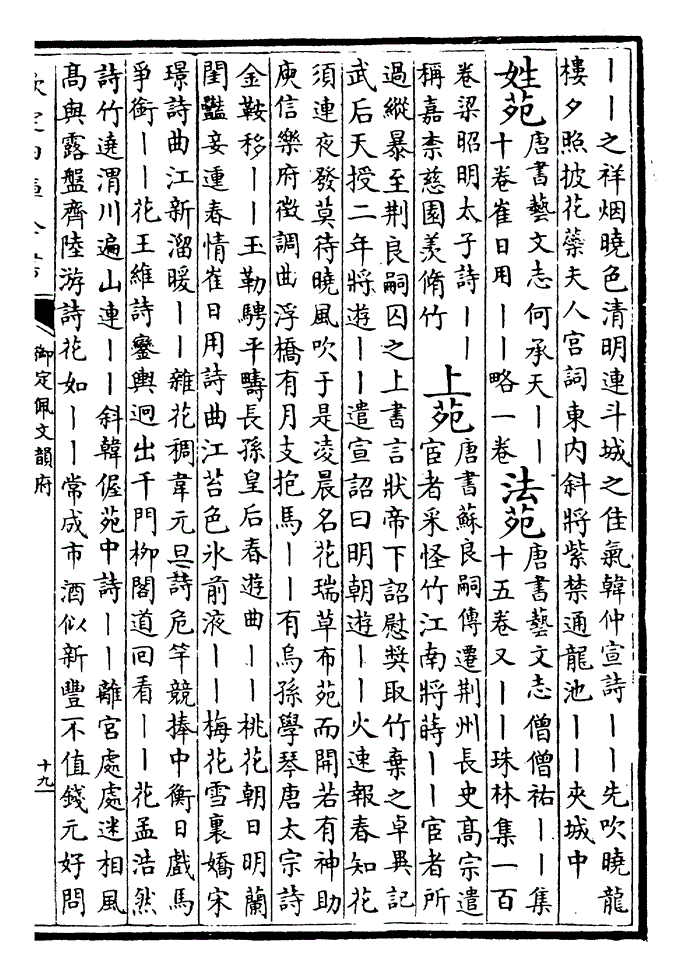 ｜｜之祥烟曉色清明連斗城之佳氣韓仲宣詩｜｜先吹曉龍
樓夕照披花蘂夫人宫詞東内斜將紫禁通龍池｜｜夾城中
姓苑
唐書藝文志何承天｜｜
十卷崔日用｜｜略一卷
法苑
唐書藝文志僧僧祐｜｜集
十五卷又｜｜珠林集一百
卷梁昭明太子詩｜｜
稱嘉柰慈園羨脩竹
上苑
唐書蘇良嗣傳遷荆州長史髙宗遣
宦者采怪竹江南將蒔｜｜宦者所
過縱暴至荆良嗣囚之上書言狀帝下詔慰奬取竹棄之卓異記
武后天授二年將遊｜｜遣宣詔曰明朝遊｜｜火速報春知花
須連夜發莫待曉風吹于是凌晨名花瑞草布苑而開若有神助
庾信樂府徵調曲浮橋有月支抱馬｜｜有烏孫學琴唐太宗詩
金鞍移｜｜玉勒騁平疇長孫皇后春遊曲｜｜桃花朝日明蘭
閨豔妾連春情崔日用詩曲江苔色氷前液｜｜梅花雪裏嬌宋
璟詩曲江新溜暖｜｜雜花稠韋元旦詩危竿競捧中衡日戲馬
爭銜｜｜花王維詩鑾輿迥出千門柳閣道回看｜｜花孟浩然
詩竹遶渭川遍山連｜｜斜韓偓苑中詩｜｜離宫處處迷相風
髙與露盤齊陸游詩花如｜｜常成市酒似新豐不值錢元好問
欽定四庫全書
御定佩文韻府
十九